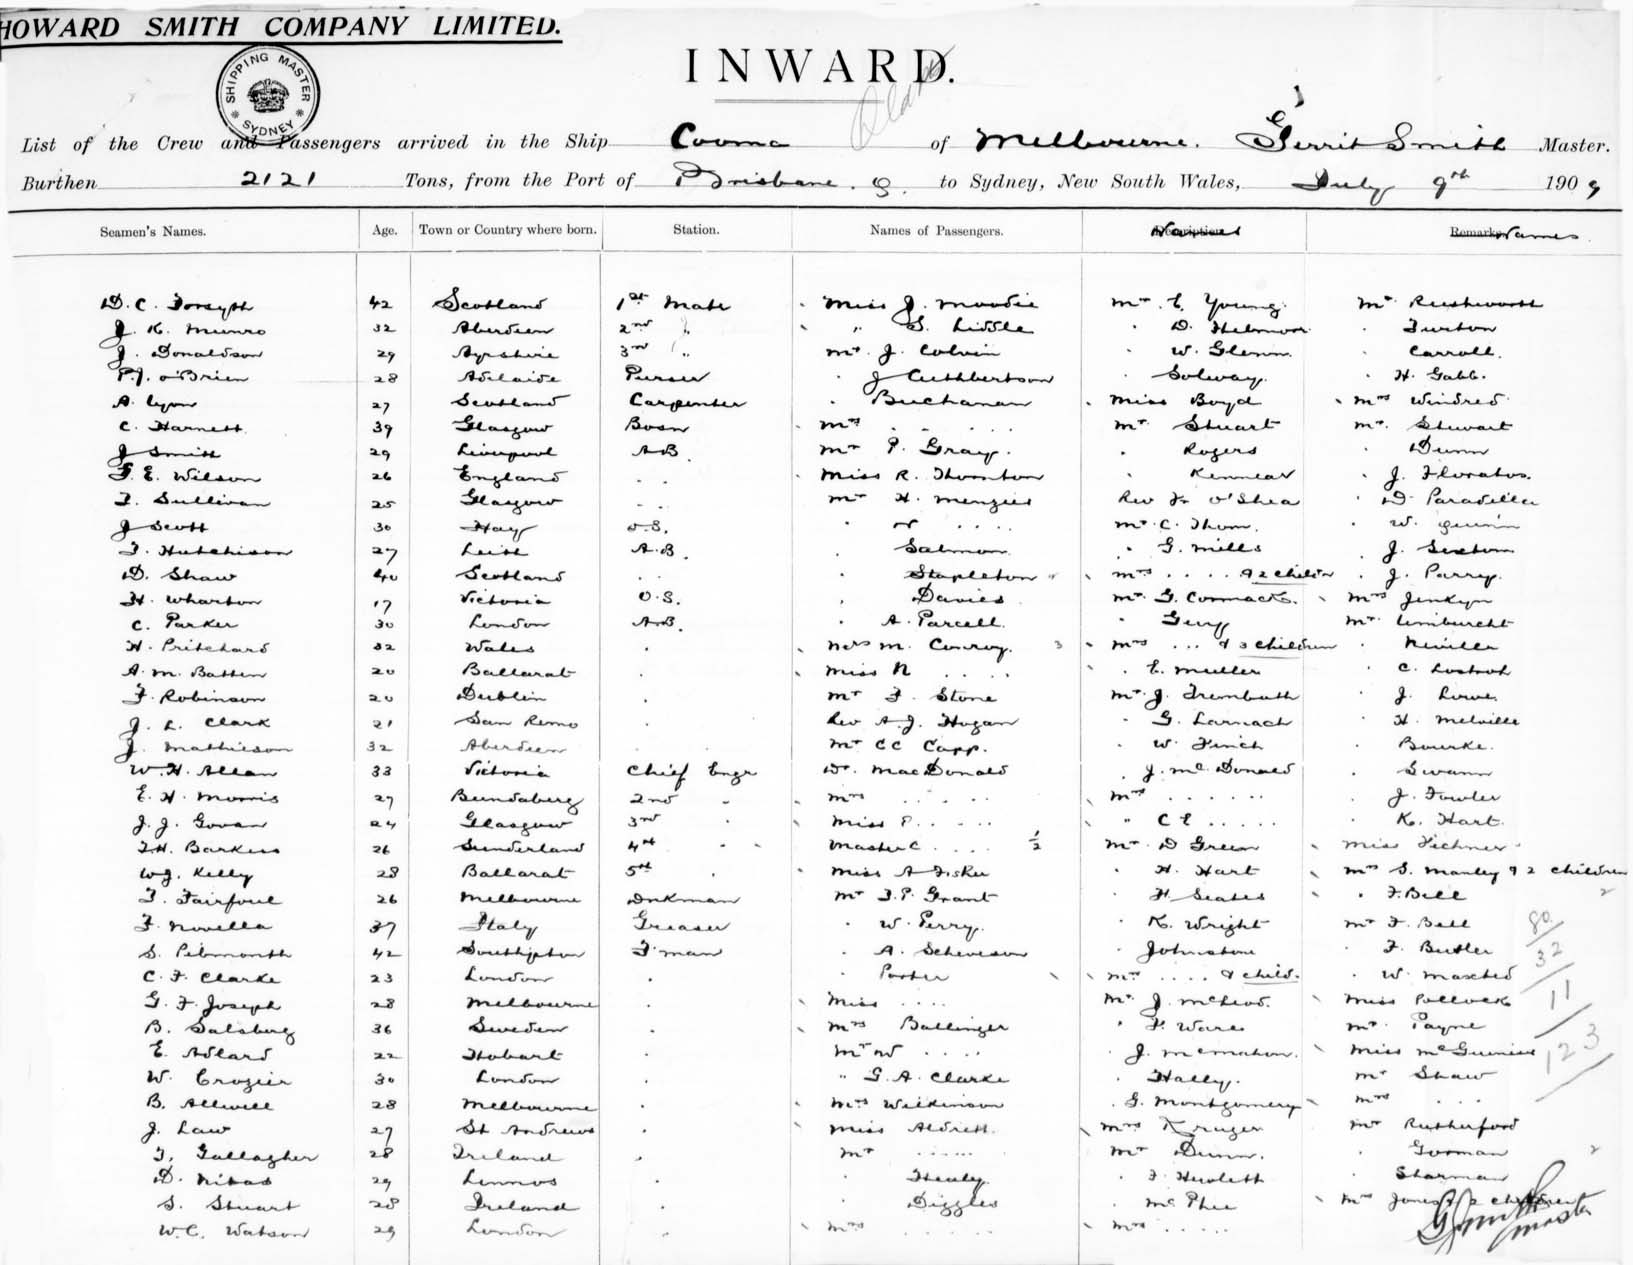 HOWARD SMITH COMPANY LIMITED.
SHIPPING MASTER
SYDNEY
INWARD.
List of the Crew and Passengers arrived in the Ship Cooma of Melbourne. Gerrit Smith Master.
Burthen 2121 Tons, from the Port of Brisbane. Q. to Sydney, New South Wales, July 9th 1909
Seamen's Names. Age. Town or Country where born. Station. Names of Passengers. Names Remarks Names
D. C. Forsyth 42 Scotland 1st Mate Miss J. Moodie Mr. E. Young. Mr Rushworth
J. K. Munro 32 Aberdeen 2nd " " S. Liddle " D. Helmore " Turton
J. Donaldson 29 Ayrshire 3rd " Mr. J. Colvin " W. Glenn. " Carroll.
P.J. O'Brien 28 Adelaide Purser " J Cuthbertson " Solway. " H. Gabb.
A. Lyon 27 Scotland Carpenter " Buchanan Miss Boyd Mrs Windred
C. Harnett 39 Glasgow Bosn Mrs . . . . Mr Stuart Mr. Stewart
J Smith 29 Liverpool A.B. Mr P. Gray. " Rogers " Dunn
F. E. Wilson 26 England . . Miss R. Thornton " Kennear " J. Floratos.
T. Sullivan 25 Glasgow . . Mr H. Menzies Rev Fr O'Shea " D. Paradella
J Scott 30 Hay O.S. " . . . . Mr. C. Thom. " W. Quinn
T. Hutchison 27 Leith A.B. " Salmon " G. Mills " J. Sextom
D. Shaw 40 Scotland . . " Stapleton Mrs . . . . & 2 childrn " J. Parry.
H. Wharton 17 Victoria O.S. " Davies Mr. G. Cormack. Mrs Jenkyn
C. Parker 30 London A.B. " A. Parcell. " Mr
H. Pritchard 32 Wales . Mrs M. Conroy. Mrs . . . & 3 children " Neville
A. M. Batten 20 Ballarat . Miss N . . . . " E. Muller " C.
F. Robinson 20 Dublin . Mr F. Stone Mr. J. Trembath " J. Lowe.
J. L. Clark 21 San Remo . Rev A. J. Hogan " G. Larnach " H. Melville
J. Mathieson 32 Aberdeen . Mr C C Capp. " W. Finch " Bourke.
W. H. Allan 33 Victoria Chief Engr Dr. MacDonald " J. McDonald " Swann
E. H. Morris 27 Bundaberg 2nd " Mrs . . . . . Mrs . . . . . . " J. Fowler
J. J. Govan 24 Glasgow 3rd " Miss P. . . . . " C E . . . . . " K. Hart.
T.H. Barkus 26 Sunderland 4th " Master C. . . . . 1/2 Mr. D Green Miss Tichner
W J. Kelly 28 Ballarat 5th " Miss A Fisher " H. Hart Mrs S. Manley & 2 children
T. Fairfoul 26 Melbourne Dnkman Mr T. P. Grant " H. Seates " F. Bell 2
F. Novella 37 Italy Greaser " W. Perry. " K. Wright Mr F. Ball 80
S. Pibmonth 42 Southpton F'man " A. Scheveson " Johnstone " F. Butler 32
C. F. Clarke 23 London . " Porter Mrs . . . . & child. " W. Maxted
G. F. Joseph 28 Melbourne . Miss . . . . Mr. J. McLeod. Miss Pollock 11
B. Salsberg 36 Sweden . Mrs Ballinger " F. Ware Mr. Payne
E. Adlard 22 Hobart . Mr W . . . . " J. McMahon. Miss McGuiniss 123
W. Crozier 30 London . " G. A. Clarke " Hally. Mr Shaw
B. Allwell 28 Melbourne . Mrs Wilkinson " G. Montgomery Mrs . . .
J. Law 27 St Andrews . Miss Aldrett. Mrs Kruger Mr Rutherford
T. Gallagher 28 Ireland . Mr . . . . . Mr Dunn. " Gorman 2
D. Nikas 29 Lemnos . " Healy " F. Hewlett " Sharman
S. Stuart 28 Ireland . " Diggles " McPhee Mrs Jones & 2 children
W. C. Watson 29 London . Mrs . . . . . Mrs . . . . .
G Smith
Master